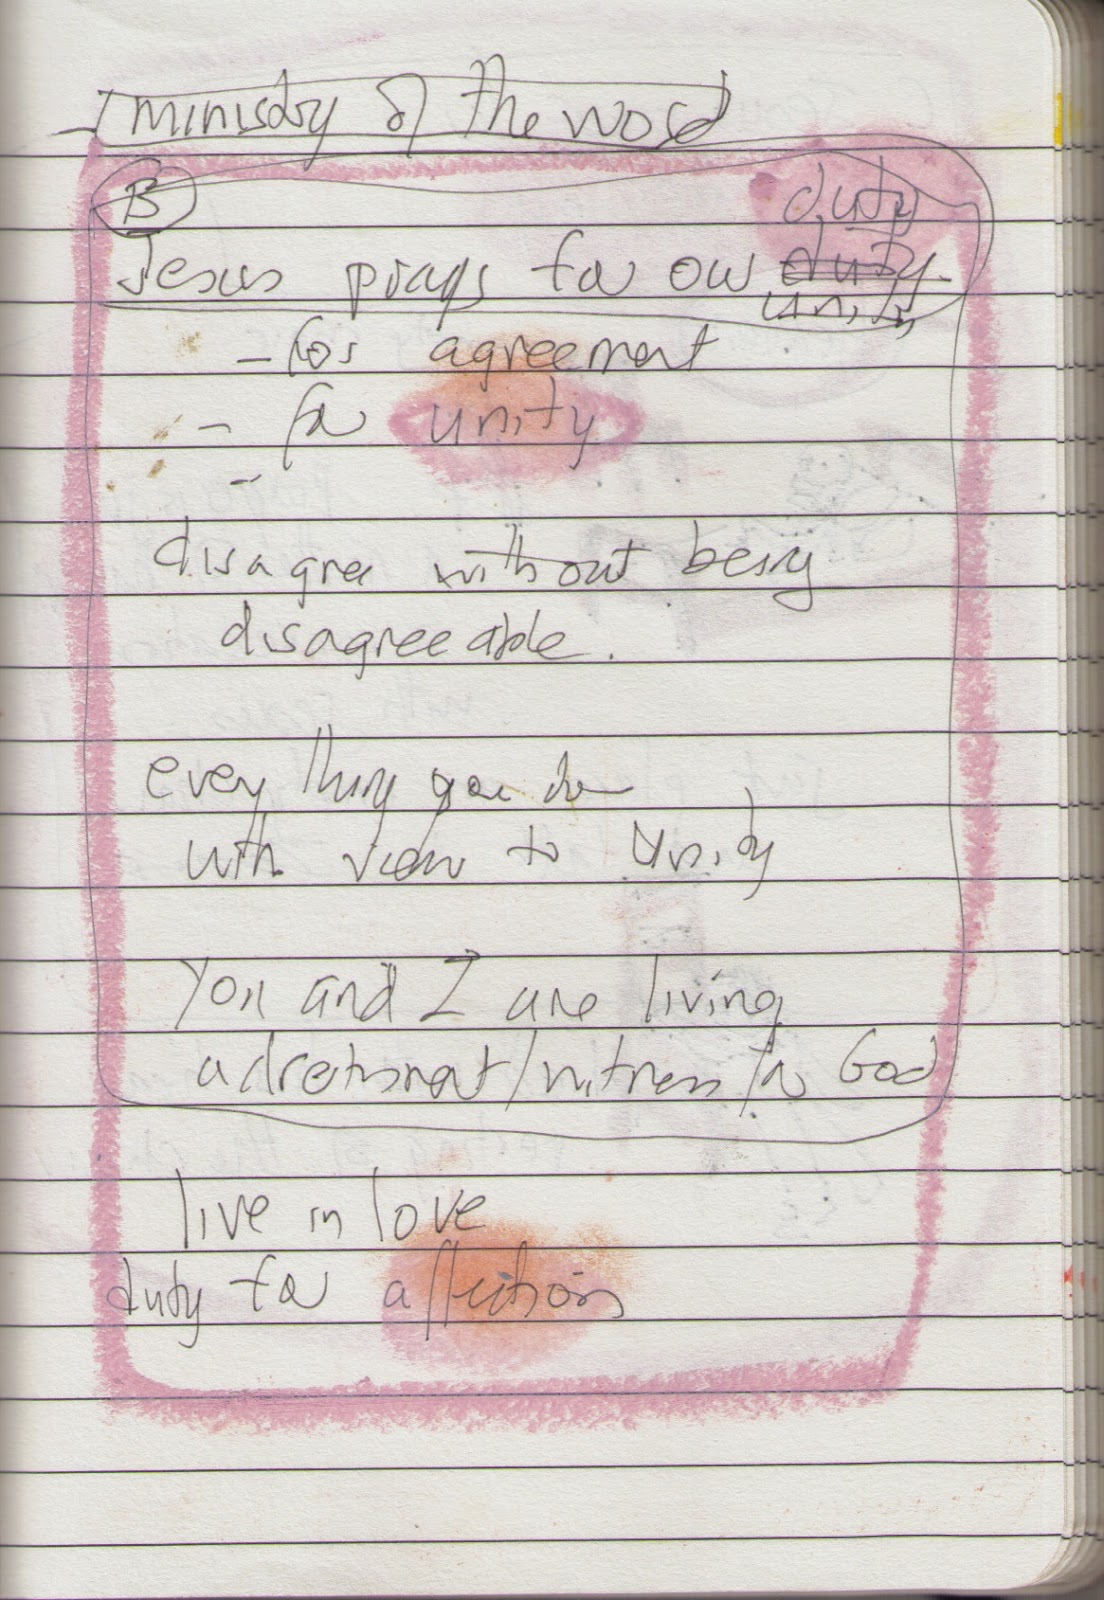 ministry of the word
B
duty
Jesus prays for our duty
unity
- for agreement
- for unity
-
disagree without being
disagreeable.
every thing you do
with view to unity
You and I are living
/witness for God
live in love
duty for affection